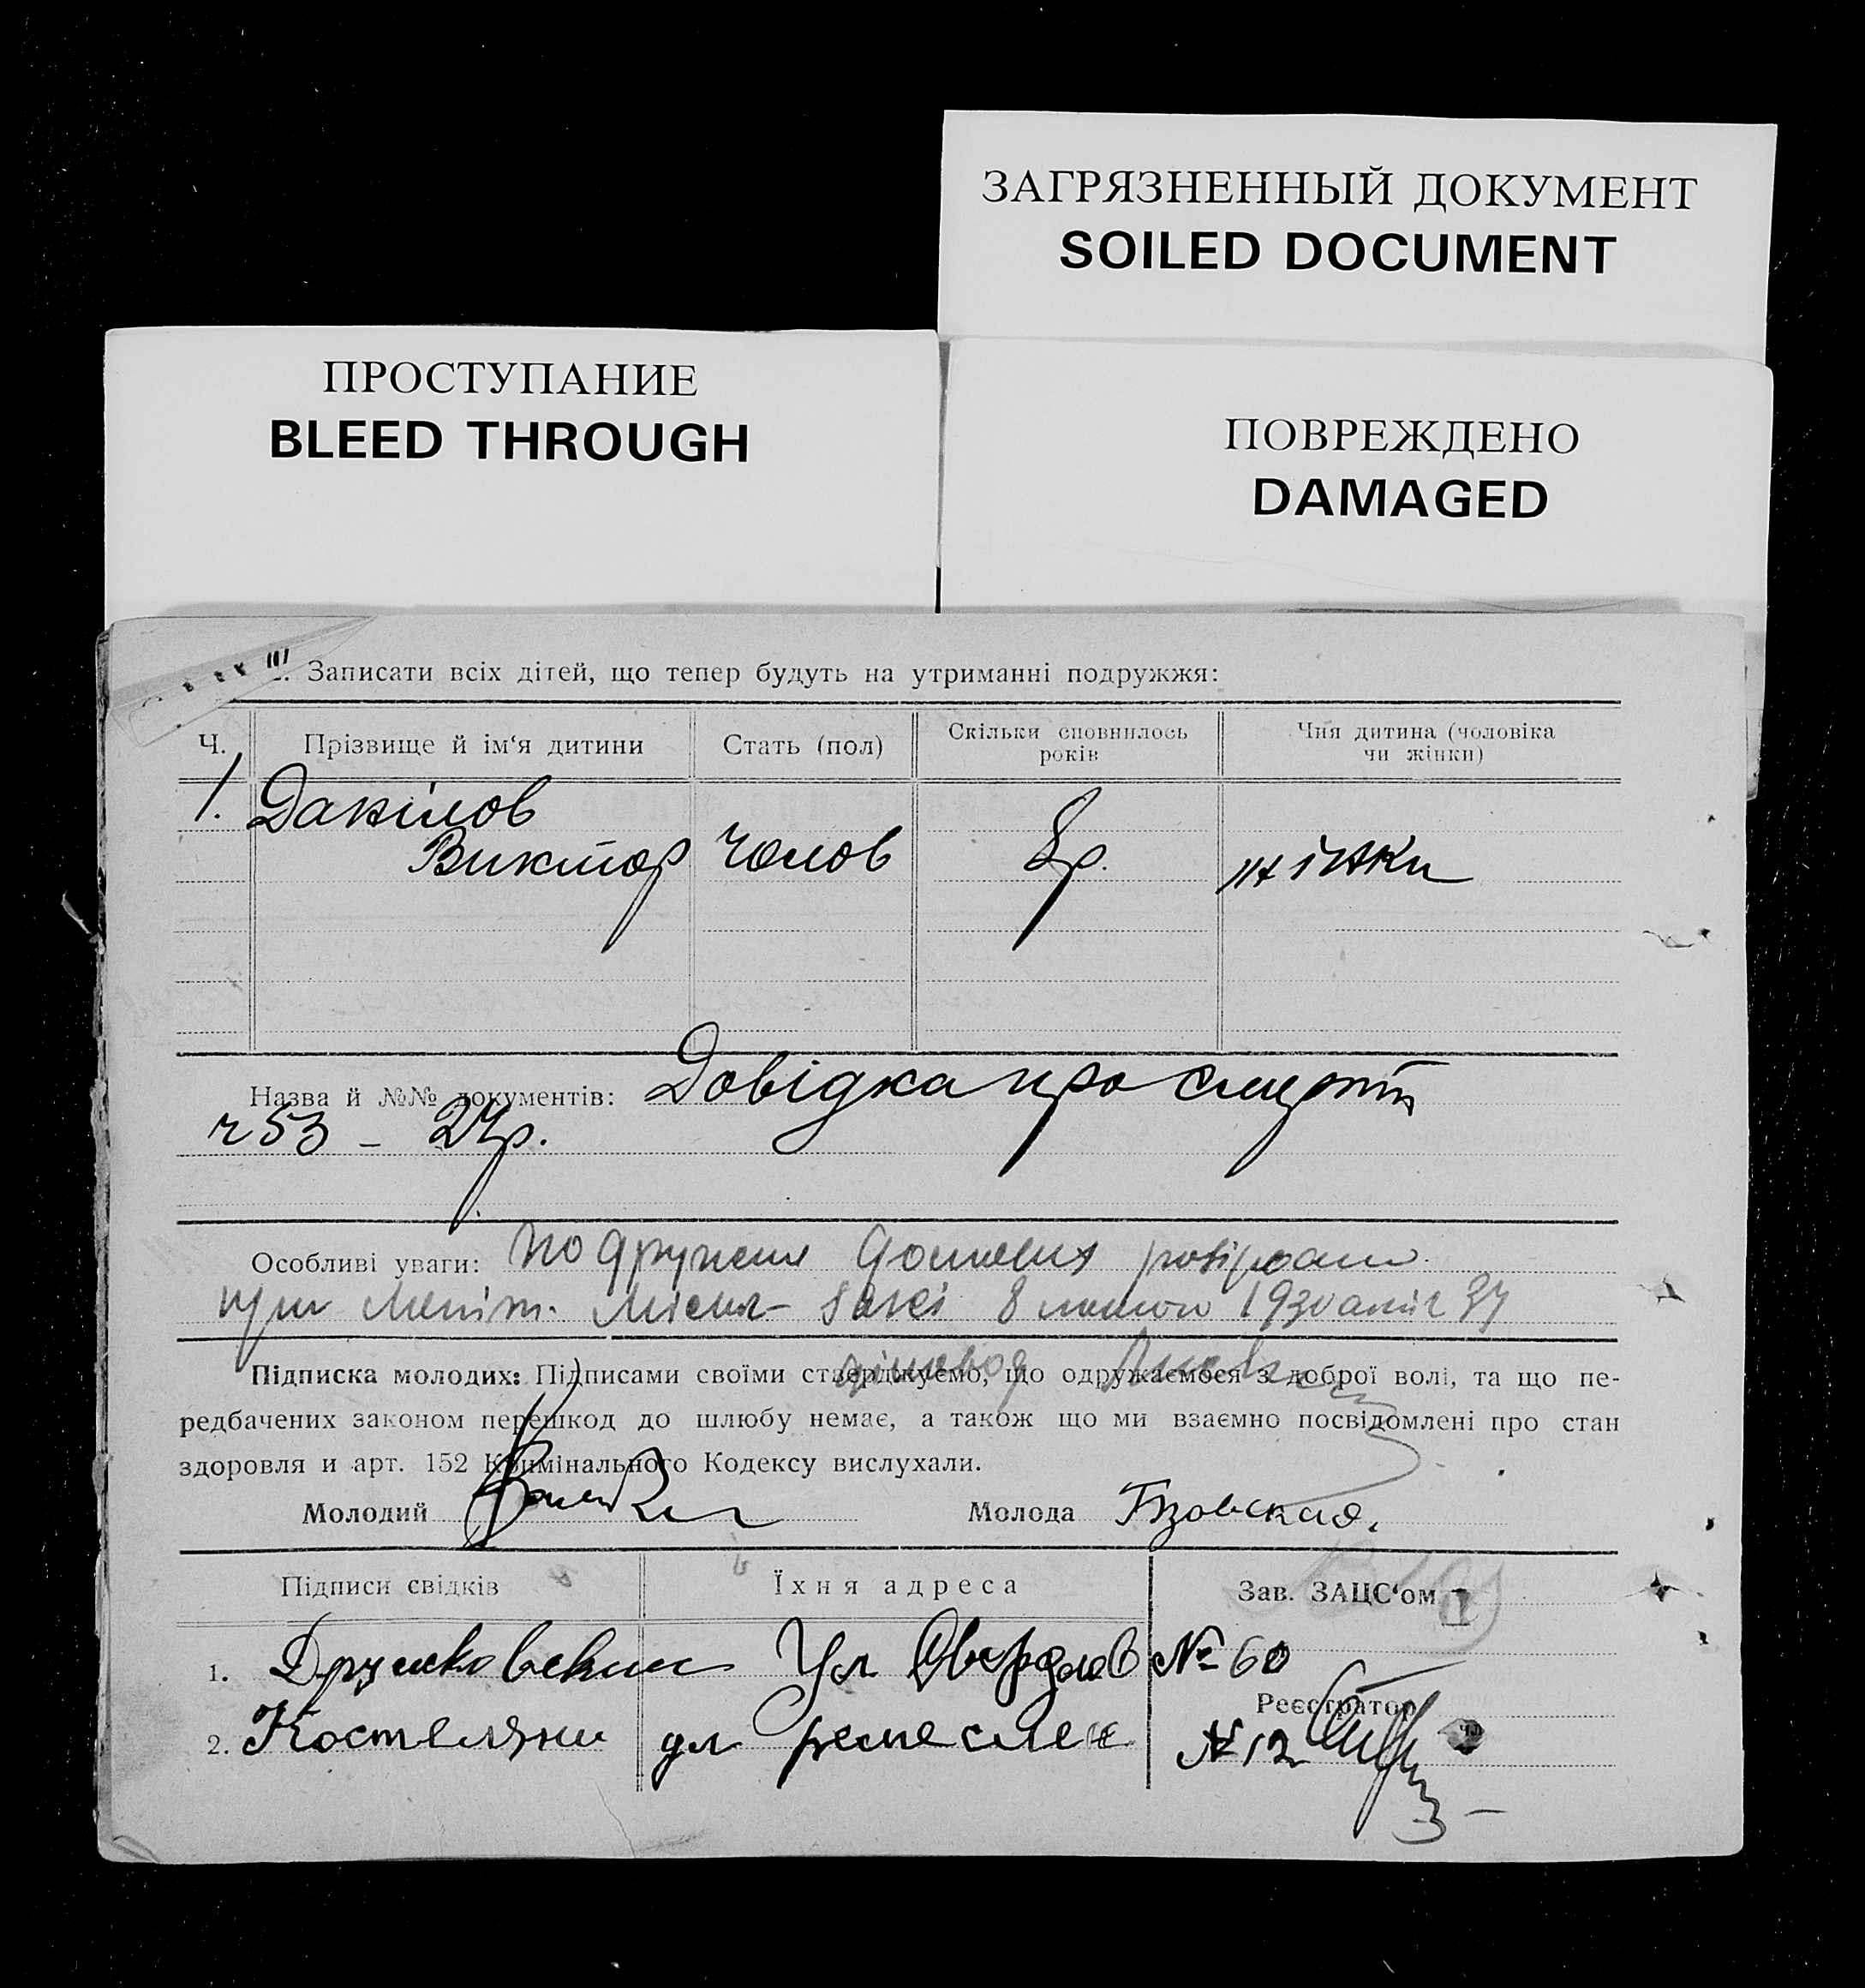 ЗАГРЯЗНЕННЫЙ ДОКУМЕНТ
SOILED DOCUMENT
ПРОСТУПАНИЕ
BLEED THROUGH
ПОВРЕЖДЕНО
DAMAGED
Записати всіх дітей, що тепер будуть на утриманні подружжя:
Ч.
Прізвище й ім‘я дитини
Стать (пол)
Скільки сповнилось
років
Чия дитина (чоловіка
чи жінки)
1. Данілов
Виктор чолов 8р. жінки
Назва й №№ документів: Довідка про смерть
ч 53 – 24р.
Особливі уваги: подружжя
при 8 1930 34
Підписка молодих: Підписами своїми стверджуємо, що одружаємося з доброї волі, та що пе-
редбачених законом перешкод до шлюбу немає, а також що ми взаємно посвідомлені про стан
здоровля и арт. 152 Кримінального Кодексу вислухали.
Молодий
Молода
Підписи свідків
Їхня адреса
Зав. ЗАЦС‘ом
1. Ул Свердлов № 60
Реєстратор
2. ул ремеслен № 12